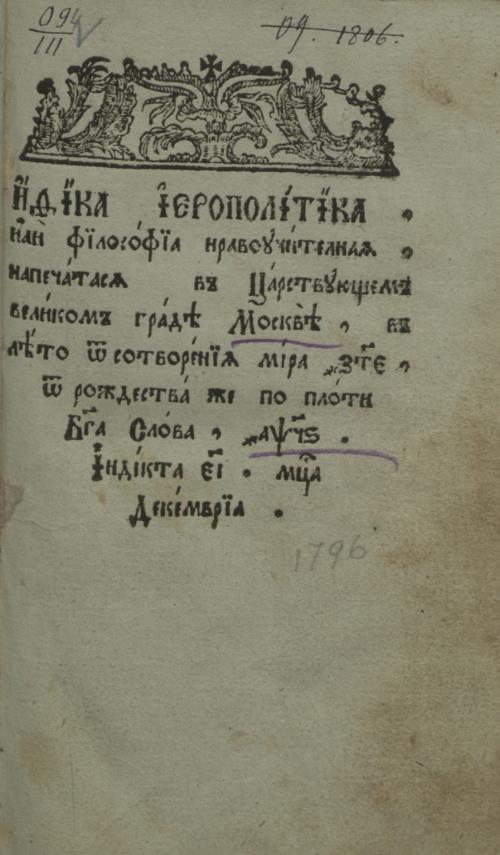 094
III
09. 1806.
И҆́ѲІ́КА І҆ЕРОПОЛІ́ТІКА ,
и҆лѝ фїлосо́фїа нравоꙋчи́телнаѧ ,
напеча́тасѧ въ Ца́рствꙋющемъ
вели́комъ гра́дѣ Москвѣ̀ , въ
лѣ́то ѿ сотворе́нїѧ мі́ра ҂зт҃е ,
ѿ рождества́ же по пло́ти
Бг҃а Сло́ва , ҂аѱч҃ѕ .
І҆нді́кта є҃і . мц҃а
Деке́мврїа .
1796